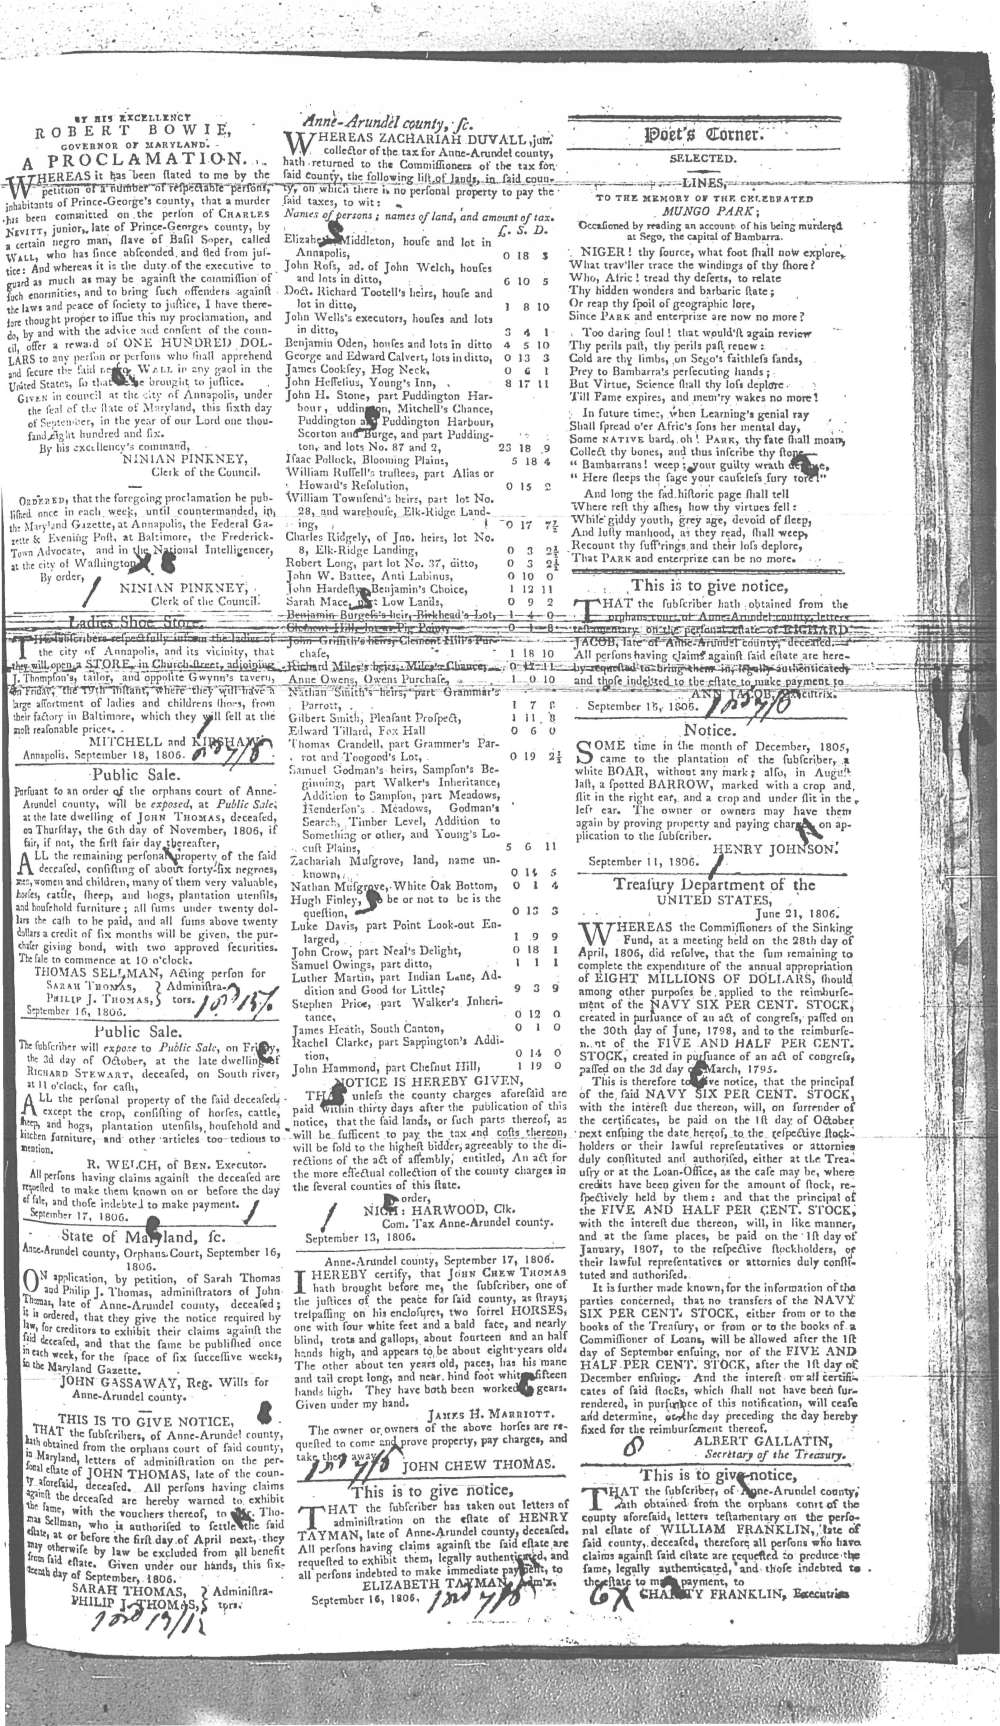 BY HIS EXCELLENCY
ROBERT BOWIE,
GOVERNOR OF MARYLAND.
A PROCLAMATION.
WHEREAS it has been stated to me by the
petition of a number of respectable persons,
inhabitants of Prince-George's county, that a murder
has been committed on the person of CHARLES
NEVITT, junior, late of Prince-Georges county, by
a certain negro man, slave of Basil Soper, called
WALL, who has since absconded and fled from jus-
tice: And whereas it is the duty of the executive to
guard as much as may be against the commission of
such enormities, and to bring such offenders against
the laws and peace of society to justice, I have there-
fore thought proper to issue this my proclamation, and
do, by and with the advice and consent of the coun-
cil, offer a reward of ONE HUNDRED DOL-
LARS to any person or persons who shall apprehend
and secure the said negro WALL in any gaol in the
United States, so that brought to justice.
GIVEN in council at the city of Annapolis, under
the seal of the state of Maryland, this sixth day
of September, in the year of our Lord one thou-
sand eight hundred and six.
By his excellency's command,
NINIAN PINKNEY,
Clerk of the Council.
ORDERED, that the foregoing proclamation be pub-
lished once in each week, until countermanded, in
the Maryland Gazette, at Annapolis, the Federal Ga-
zette & Evening Post, at Baltimore, the Frederick-
Town Advocate, and in the National Intelligencer,
at the city of Washington
By order,
NINIAN PINKNEY,
Clerk of the Council.
Ladies Shoe Store.
THE subscribers respectfully inform the ladies of
the city of Annapolis, and its vicinity, that
they will open a STORE, in Church-street, adjoining
J. Thompson's, tailor, and opposite Gwynn's tavern,
on Friday, the 19th instant, where they will have a
large assortment of ladies and childrens shoes, from
their factory in Baltimore, which they will sell at the
most reasonable prices.
MITCHELL and KIRSHAW.
Annapolis, September 18, 1806.
Public Sale.
Pursuant to an order of the orphans court of Anne-
Arundel county, will be exposed, at Public Sale,
at the late dwelling of JOHN THOMAS, deceased,
on Thursday, the 6th day of November, 1806, if
fair, if not, the first fair day thereafter,
ALL the remaining personal property of the said
deceased, consisting of about forty-six negroes,
men, women and children, many of them very valuable,
horses, cattle, sheep, and hogs, plantation utensils,
and household furniture; all sums under twenty dol-
lars the cash to be paid, and all sums above twenty
dollars a credit of six months will be given, the pur-
chaser giving bond, with two approved securities.
The sale to commence at 10 o'clock.
THOMAS SELLMAN, Acting person for
SARAH THOMAS, } Administra-
PHILIP J. THOMAS, } tors.
September 16, 1806.
Public Sale.
The subscriber will expose to Public Sale, on Friday,
the 3d day of October, at the late dwelling of
RICHARD STEWART, deceased, on South river,
at 11 o'clock, for cash,
ALL the personal property of the said deceased,
except the crop, consisting of horses, cattle,
sheep, and hogs, plantation utensils, household and
kitchen furniture, and other articles too tedious to
mention.
R. WELCH, of BEN. Executor.
All persons having claims against the deceased are
requested to make them known on or before the day
of sale, and those indebted to make payment.
September 17, 1806.
State of Maryland, sc.
Anne-Arundel county, Orphans Court, September 16,
1806.
ON application, by petition, of Sarah Thomas
and Philip J. Thomas, administrators of John
Thomas, late of Anne-Arundel county, deceased;
it is ordered, that they give the notice required by
law, for creditors to exhibit their claims against the
said deceased, and that the same be published once
in each week, for the space of six successive weeks,
in the Maryland Gazette.
JOHN GASSAWAY, Reg. Wills for
Anne-Arundel county.
THIS IS TO GIVE NOTICE,
THAT the subscribers, of Anne-Arundel county,
hath obtained from the orphans court of said county,
in Maryland, letters of administration on the per-
sonal estate of JOHN THOMAS, late of the coun-
ty aforesaid, deceased. All persons having claims
against the deceased are hereby warned to exhibit
the same, with the vouchers thereof, to Tho-
mas Sellman, who is authorised to settle the said
estate, at or before the first day of April next, they
may otherwise by law be excluded from all benefit
from said estate. Given under our hands, this six-
teenth day of September, 1806.
SARAH THOMAS, } Administra-
PHILIP J. THOMAS, } tors.
Anne-Arundel county, sc.
WHEREAS ZACHARIAH DUVALL, jun.
collector of the tax for Anne-Arundel county,
hath returned to the Commissioners of the tax for
said county, the following list of lands, in said coun-
ty, on which there is no personal property to pay the
said taxes, to wit:
Names of persons; names of land, and amount of tax.
£. S. D.
Elizabeth Middleton, house and lot in
Annapolis, 0 18 3
John Ross, ad. of John Welch, houses
and lots in ditto, 6 10 5
Doct. Richard Tootell's heirs, house and
lot in ditto, 1 8 10
John Wells's executors, houses and lots
in ditto, 3 4 1
Benjamin Oden, houses and lots in ditto 4 5 10
George and Edward Calvert, lots in ditto, 0 13 3
James Cooksey, Hog Neck, 0 6 1
John Hesselius, Young's Inn, 8 17 11
John H. Stone, part Puddington Har-
bour, uddington, Mitchell's Chance,
Puddington and Puddington Harbour,
Scorton and Burge, and part Pudding-
ton, and lots No. 87 and 2, 23 18 9
Isaac Pollock, Blooming Plains, 5 18 4
William Russell's trustees, part Alias or
Howard's Resolution, 0 15 2
William Townsend's heirs, part lot No.
28, and warehouse, Elk-Ridge Land-
ing, 0 17 7½
Charles Ridgely, of Jno. heirs, lot No.
8, Elk-Ridge Landing, 0 3 2½
Robert Long, part lot No. 37, ditto, 0 3 2½
John W. Battee, Anti Labinus, 0 10 0
John Hardesty, Benjamin's Choice, 1 12 11
Sarah Mace, part Low Lands, 0 9 2
Benjamin Burgess's heir, Birkhead's Lot, 1 4 0
Clement Hill, lot at Pig Point, 0 1 8
John Griffith's heirs, Clement Hill's Pur-
chase, 1 18 10
Richard Miles's heirs, Miles's Chance, 0 17 11
Anne Owens, Owens Purchase, 1 0 10
Nathan Smith's heirs, part Grammar's
Parrott, 1 7 8
Gilbert Smith, Pleasant Prospect, 1 11 8
Edward Tillard, Fox Hall 0 6 0
Thomas Crandell, part Grammer's Par-
rot and Toogood's Lot, 0 19 2½
Samuel Godman's heirs, Sampson's Be-
ginning, part Walker's Inheritance,
Addition to Sampson, part Meadows,
Henderson's Meadows, Godman's
Search, Timber Level, Addition to
Something or other, and Young's Lo-
cust Plains, 5 6 11
Zachariah Musgrove, land, name un-
known, 0 14 5
Nathan Musgrove, White Oak Bottom, 0 1 4
Hugh Finley, be or not to be is the
question, 0 13 3
Luke Davis, part Point Look-out En-
larged, 1 9 9
John Crow, part Neal's Delight, 0 18 1
Samuel Owings, part ditto, 1 1 1
Luther Martin, part Indian Lane, Ad-
dition and Good for Little, 9 3 9
Stephen Price, part Walker's Inheri-
tance, 0 12 0
James Heath, South Canton, 0 1 0
Rachel Clarke, part Sappington's Addi-
tion, 0 14 0
John Hammond, part Chesnut Hill, 1 19 0
NOTICE IS HEREBY GIVEN,
THAT unless the county charges aforesaid are
paid within thirty days after the publication of this
notice, that the said lands, or such parts thereof, as
will be sufficent to pay the tax and costs thereon,
will be sold to the highest bidder, agreeably to the di-
rections of the act of assembly, entitled, An act for
the more effectual collection of the county charges in
the several counties of this state.
order,
NICH: HARWOOD, Clk.
Com. Tax Anne-Arundel county.
September 13, 1806.
Anne-Arundel county, September 17, 1806.
I HEREBY certify, that JOHN CHEW THOMAS
hath brought before me, the subscriber, one of
the justices of the peace for said county, as strays,
trespassing on his enclosures, two sorrel HORSES,
one with four white feet and a bald face, and nearly
blind, trots and gallops, about fourteen and an half
hands high, and appears to be about eight years old.
The other about ten years old, paces, has his mane
and tail cropt long, and near hind foot white, fifteen
hands high. They have both been worked gears.
Given under my hand.
JAMES H. MARRIOTT.
The owner or owners of the above horses are re-
quested to come and prove property, pay charges, and
take them away.
JOHN CHEW THOMAS.
This is to give notice,
THAT the subscriber has taken out letters of
administration on the estate of HENRY
TAYMAN, late of Anne-Arundel county, deceased.
All persons having claims against the said estate are
requested to exhibit them, legally authenticated, and
all persons indebted to make immediate payment, to
ELIZABETH TAYMAN, Adm'x.
September 16, 1806.
Poet's Corner.
SELECTED.
LINES,
TO THE MEMORY OF THE CELEBRATED
MUNGO PARK;
Occasioned by reading an account of his being murdered
at Sego, the capital of Bambarra.
NIGER! thy source, what foot shall now explore,
What trav'ller trace the windings of thy shore?
Who, Afric! tread thy deserts, to relate
Thy hidden wonders and barbaric state;
Or reap thy spoil of geographic lore,
Since PARK and enterprize are now no more?
Too daring soul! that would'st again review
Thy perils past, thy perils past renew:
Cold are thy limbs, on Sego's faithless sands,
Prey to Bambarra's persecuting hands;
But Virtue, Science shall thy loss deplore
Till Fame expires, and mem'ry wakes no more!
In future time, when Learning's genial ray
Shall spread o'er Afric's sons her mental day,
Some NATIVE bard, oh! PARK, thy fate shall moan,
Collect thy bones, and thus inscribe thy stone
" Bambarrans! weep; your guilty wrath
" Here sleeps the sage your causeless fury tore!"
And long the sad historic page shall tell
Where rest thy ashes, how thy virtues fell:
While giddy youth, grey age, devoid of sleep,
And lusty manhood, as they read, shall weep,
Recount thy suff'rings and their loss deplore,
That PARK and enterprize can be no more.
This is to give notice,
THAT the subscriber hath obtained from the
orphans court of Anne-Arundel county, letters
testamentary on the personal estate of RICHARD
JACOB, late of Anne-Arundel county, deceased.
All persons having claims against said estate are here-
by requested to bring them in, legally authenticated,
and those indebted to the estate to make payment to
ANN JACOB, Executrix.
September 16, 1806.
Notice.
SOME time in the month of December, 1805,
came to the plantation of the subscriber, a
white BOAR, without any mark; also, in August
last, a spotted BARROW, marked with a crop and
slit in the right ear, and a crop and under slit in the
left ear. The owner or owners may have them
again by proving property and paying charges, on ap-
plication to the subscriber.
HENRY JOHNSON.
September 11, 1806.
Treasury Department of the
UNITED STATES,
June 21, 1806.
WHEREAS the Commissioners of the Sinking
Fund, at a meeting held on the 28th day of
April, 1806, did resolve, that the sum remaining to
complete the expenditure of the annual appropriation
of EIGHT MILLIONS OF DOLLARS, should
among other purposes be applied to the reimburse-
ment of the NAVY SIX PER CENT. STOCK,
created in pursuance of an act of congress, passed on
the 30th day of June, 1798, and to the reimburse-
ment of the FIVE AND HALF PER CENT.
STOCK, created in pursuance of an act of congress,
passed on the 3d day of March, 1795.
This is therefore to give notice, that the principal
of the said NAVY SIX PER CENT. STOCK,
with the interest due thereon, will, on surrender of
the certificates, be paid on the 1st day of October
next ensuing the date hereof, to the respective stock-
holders or their lawful representatives or attornies
duly constituted and authorised, either at the Trea-
sury or at the Loan-Office, as the case may be, where
credits have been given for the amount of stock, re-
spectively held by them: and that the principal of
the FIVE AND HALF PER CENT. STOCK,
with the interest due thereon, will, in like manner,
and at the same places, be paid on the 1st day of
January, 1807, to the respective stockholders, or
their lawful representatives or attornies duly consti-
tuted and authorised.
It is further made known, for the information of the
parties concerned, that no transfers of the NAVY
SIX PER CENT. STOCK, either from or to the
books of the Treasury, or from or to the books of a
Commissioner of Loans, will be allowed after the 1st
day of September ensuing, nor of the FIVE AND
HALF PER CENT. STOCK, after the 1st day of
December ensuing. And the interest on all certifi-
cates of said stocks, which shall not have been sur-
rendered, in pursuance of this notification, will cease
and determine, on the day preceding the day hereby
fixed for the reimbursement thereof.
ALBERT GALLATIN,
Secretary of the Treasury.
This is to give notice,
THAT the subscriber, of Anne-Arundel county,
hath obtained from the orphans court of the
county aforesaid, letters testamentary on the perso-
nal estate of WILLIAM FRANKLIN, late of
said county, deceased, therefore all persons who have
claims against said estate are requested to produce the
same, legally authenticated, and those indebted to
the estate to make payment, to
CHARITY FRANKLIN, Executrix